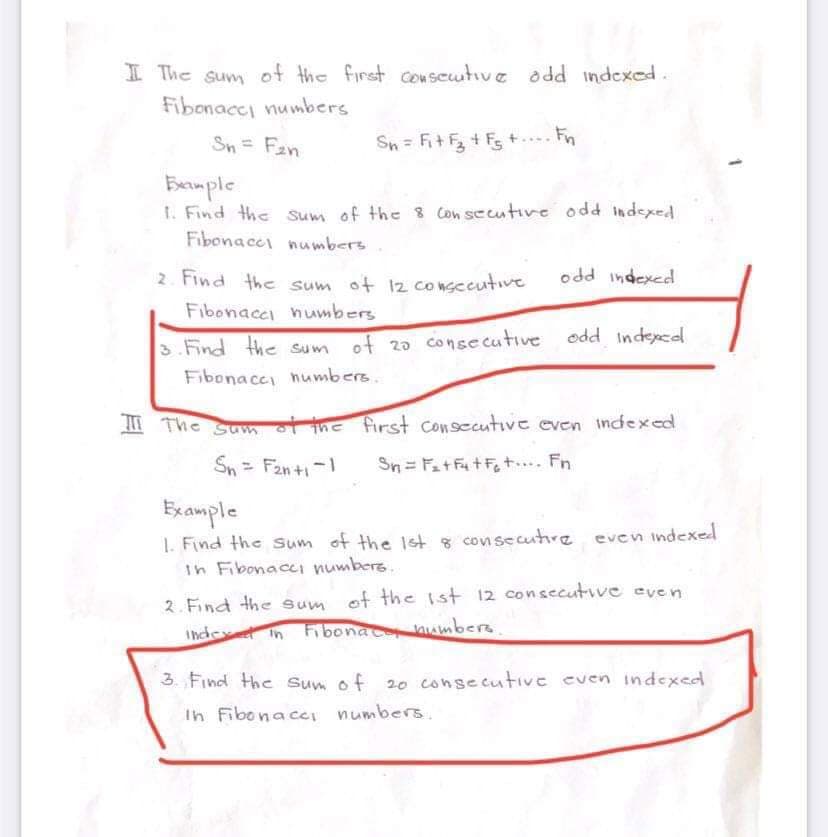 II The sum of the first consecutive odd indexed.
Fibonacci numbers
Sn = F2n Sn = F1 + F3 + F5 + .... Fn
Example
1. Find the sum of the 8 consecutive odd indexed
Fibonacci numbers
2. Find the sum of 12 consecutive odd indexed
Fibonacci numbers
3. Find the sum of 20 consecutive odd indexed
Fibonacci numbers.
III The sum of the first consecutive even indexed
Sn = F2n+1 - 1 Sn = F2 + F4 + F6 + .... Fn
Example
1. Find the sum of the 1st 8 consecutive even indexed
in Fibonacci numbers.
2. Find the sum of the 1st 12 consecutive even
indexed in Fibonacci numbers.
3. Find the sum of 20 consecutive even indexed
in Fibonacci numbers.